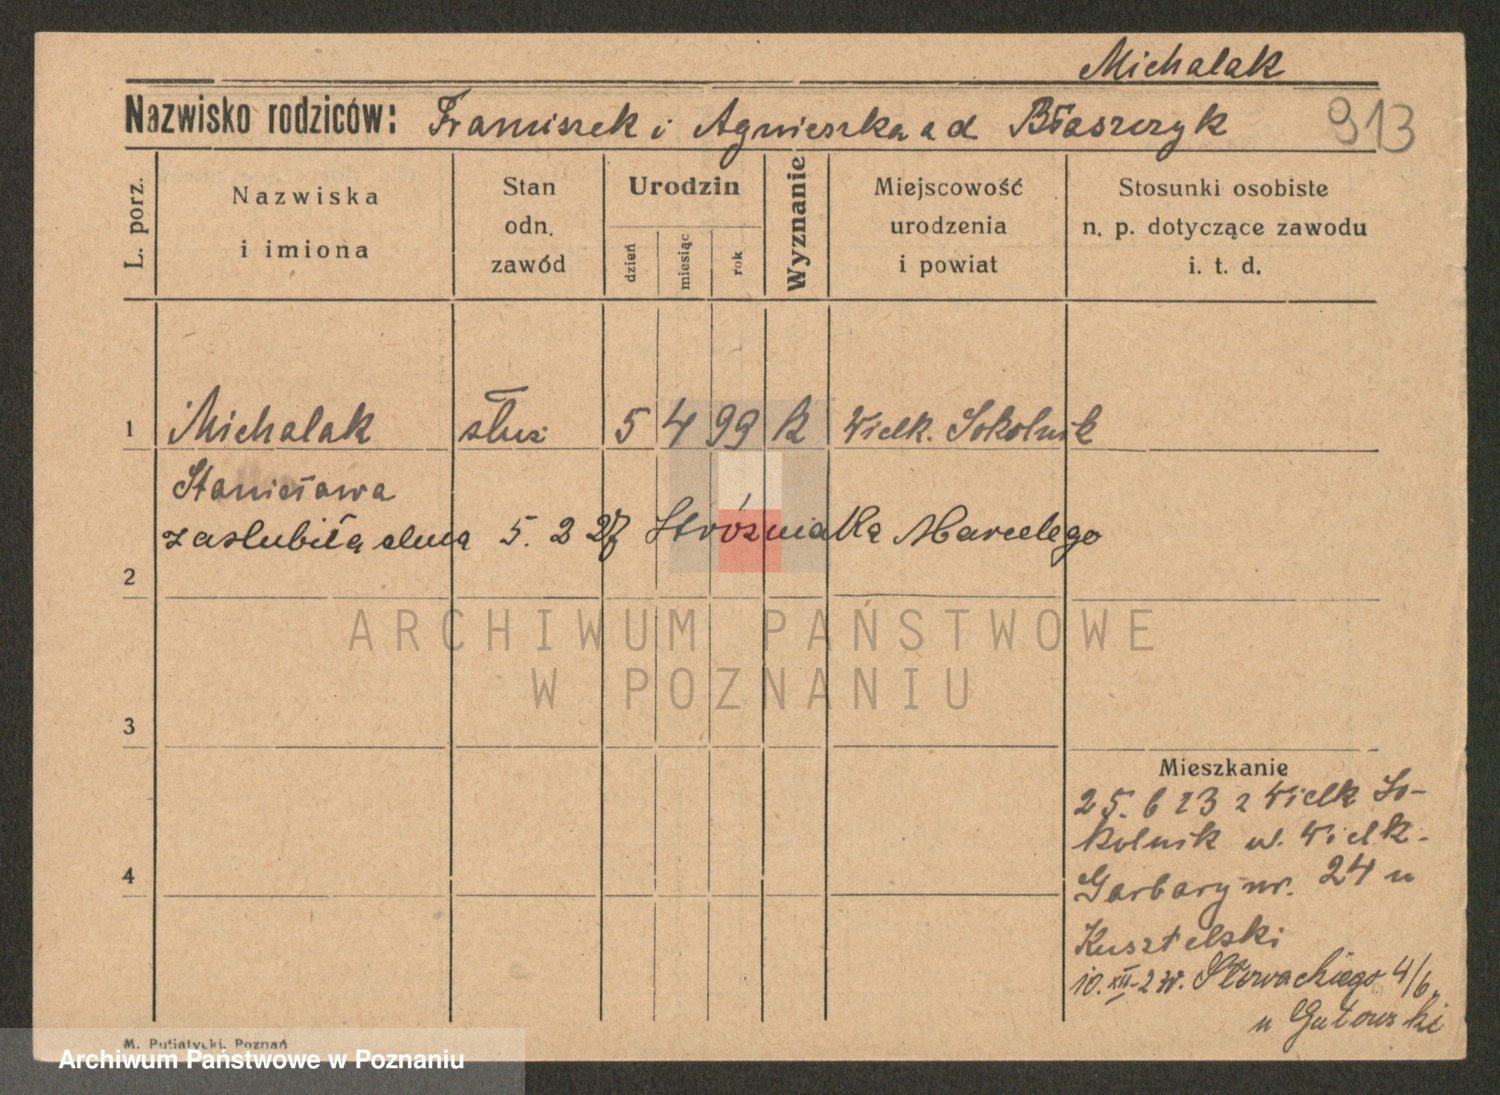 Michalak
Nazwisko rodziców: Franciszek i Agnieszka a d Błaszczyk 913
L. porz.
Nazwiska
i imiona
Stan
odn.
zawód
Urodzin
dzień
miesiąc
rok
Wyznanie
Miejscowość
urodzenia
i powiat
Stosunki osobiste
n. p. dotyczące zawodu
i. t. d.
1 Michalak służ 5 4 99 k Wielk. Sokolnik
Stanisława
zaslubiła dnia 5. 2 27 Stróżniaka Marcelego
2
3
4
Mieszkanie
25. 6 23 z Wielk So-
kolnik w. Wielk.
Garbary nr. 24 u
Kusztelski
10. XII Słowackiego 4/6.
u Gutowski
M. Putiatycki, Poznań
ARCHIWUM PAŃSTWOWE
W POZNANIU
Archiwum Państwowe w Poznaniu